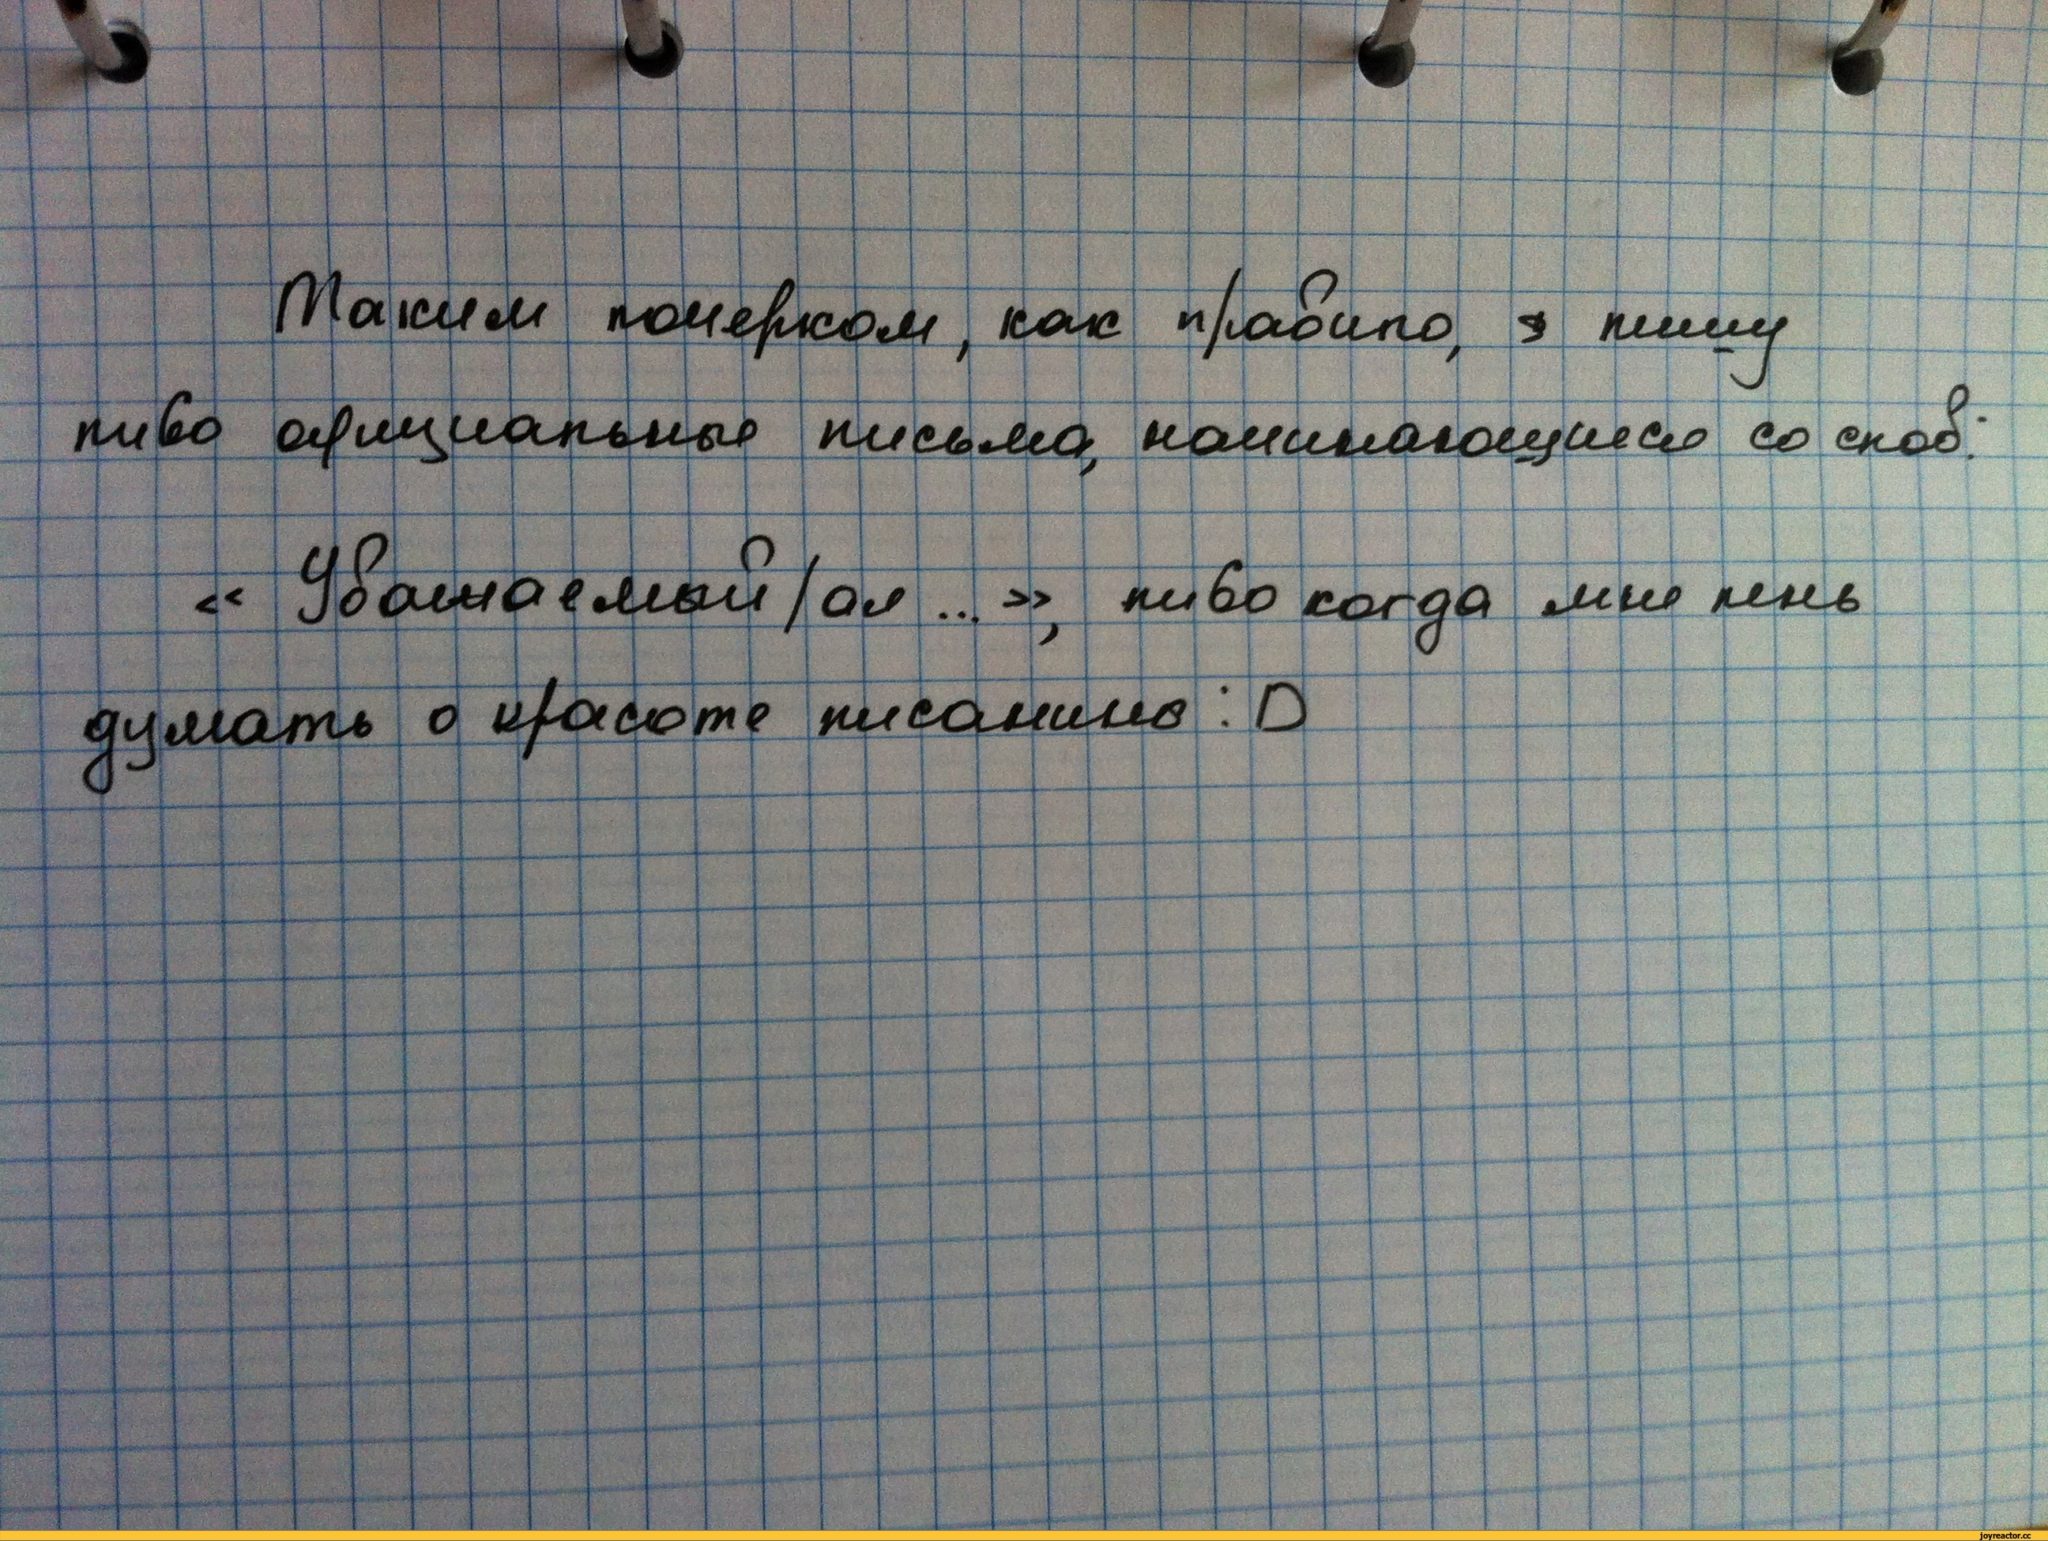 Таким почерком, как правило, я пишу
либо официальные письма, начинающиеся со слов:
« Уважаемый/ая ... », либо когда мне лень
думать о красоте писанины :D
joyreactor.cc